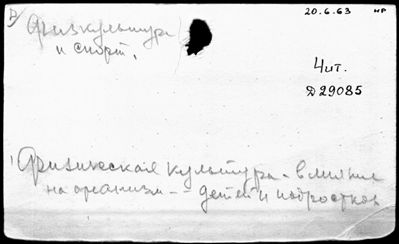 20.6.63 нр
2) Физкультура
и спорт.
Чит.
Д29085
1) Физическая культура - влияние
на организм - - детей и подростков